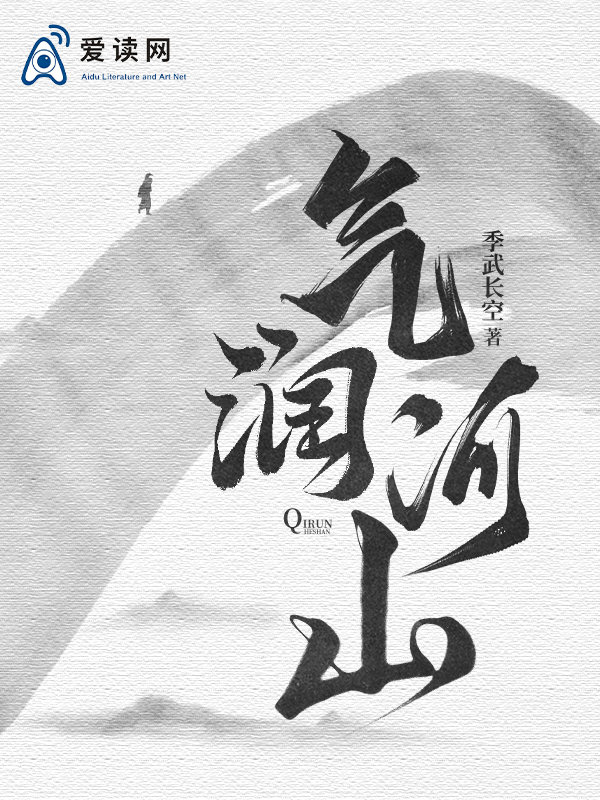 爱读网
Aidu Literature and Art Net
气润河山
季武长空 著
QIRUN
HESHAN